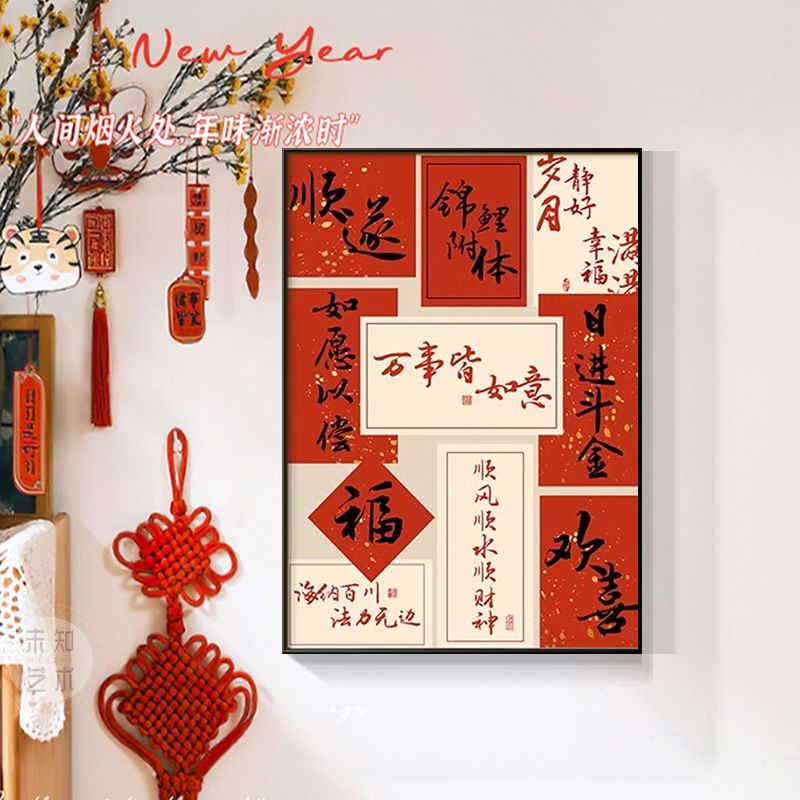 New Year
“人间烟火处,年味渐浓时”
顺遂
锦鲤
附体
岁月
静好
幸福
满满
如愿以偿
万事皆
如意
日进斗金
福
顺风顺水顺财神
欢喜
海纳百川
法力无边
未知
艺术